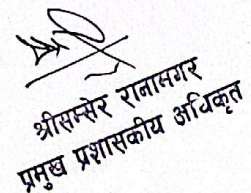 श्रीसम्सेर रानामगर
प्रमुख प्रशासकीय अधिकृत